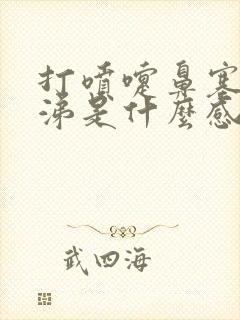 打噴嚏鼻塞
涕是什麼感
武四海